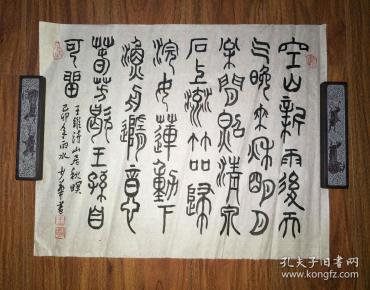 空山新雨後天
气晚來秋明月
松間照清泉
石上流竹喧歸
浣女蓮動下
漁舟隨意
春芳歇王孫自
可留
王維詩山居秋暝
己卯年雨水少華書
孔夫子旧书网
www.kongfz.com